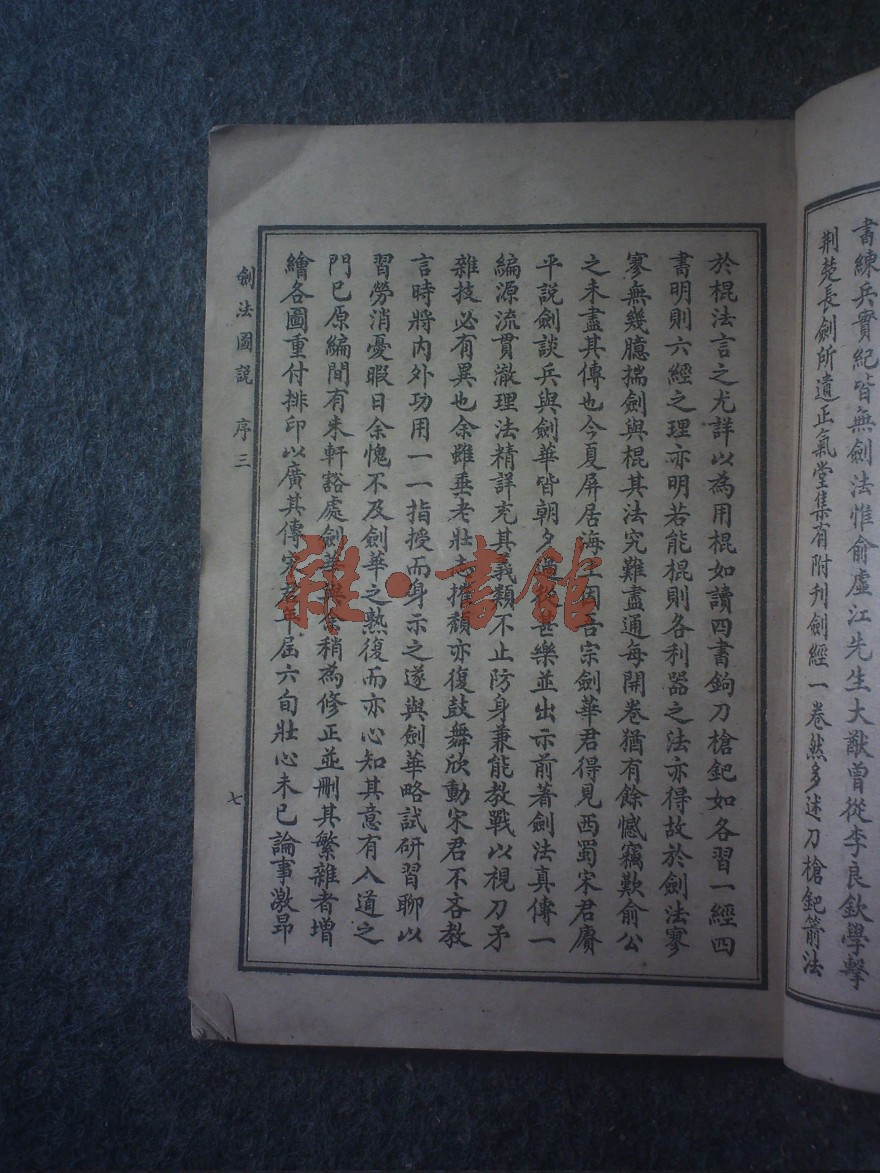 書練兵實紀皆無劍法惟俞虛江先生大猷曾從李良欽學擊
荆楚長劍所遺正氣堂集有附刋劍經一卷然多述刀槍鈀箭法
於棍法言之尤詳以為用棍如讀四書鉤刀槍鈀如各習一經四
書明則六經之理亦明若能棍則各利器之法亦得故於劍法寥
寥無幾臆揣劍與棍其法究難盡通每開卷猶有餘憾竊歎俞公
之未盡其傳也今夏屏居海上因吾宗劍華君得見西蜀宋君賡
平説劍談兵與劍華皆朝夕過從甚樂並出示前著劍法真傳一
編源流貫澈理法精詳充其義類不止防身兼能教戰以視刀矛
雜技必有異也余雖垂老壯志摧頹亦復鼓舞欣動宋君不吝教
言時將內外功用一一指授而身示之遂與劍華略試研習聊以
習勞消憂暇日余愧不及劍華之熟復而亦心知其意有入道之
門已原編間有未軒豁處劍華與余稍為修正並刪其繁雜者增
繪各圖重付排印以廣其傳宋君年屆六旬壯心未已論事激昂
劍法圖説 序三
七
雜·書館